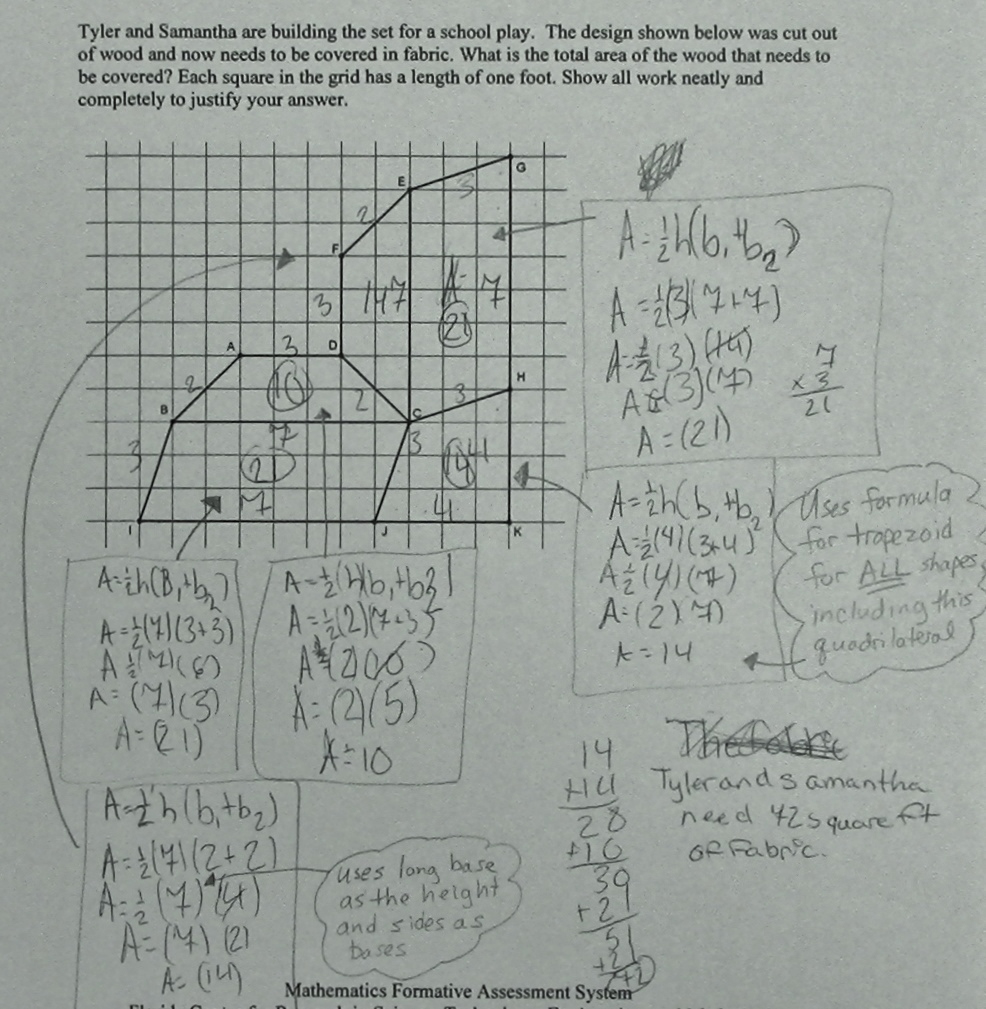 Tyler and Samantha are building the set for a school play. The design shown below was cut out
of wood and now needs to be covered in fabric. What is the total area of the wood that needs to
be covered? Each square in the grid has a length of one foot. Show all work neatly and
completely to justify your answer.
G
E
3
2
F
3
14
7
A=
7
21
A
3
D
2
10
2
H
B
C
3
7
3
3
21
14
4
7
4
I
J
K
A=½h(b₁+b₂)
A=½(3)(7+7)
A=½(3)(14)
A=(3)(7)
A=(21)
7
×3
21
A=½h(b₁+b₂)
A=½(4)(3+4)
A=½(4)(7)
A=(2)(7)
A=14
Uses formula
for trapezoid
for ALL shapes,
including this
quadrilateral
A=½h(B₁+b₂)
A=½(7)(3+3)
A ½(7)(6)
A=(7)(3)
A=(21)
A=½(h)(b₁+b₂)
A=½(2)(7+3)
A=(2)(5)
A=10
A=½h(b₁+b₂)
A=½(7)(2+2)
A=½(7)(4)
A=(7)(2)
A=(14)
uses long base
as the height
and sides as
bases
14
+14
28
+10
39
+21
51
Tyler and samantha
need 72 square ft
of Fabric.
Mathematics Formative Assessment System